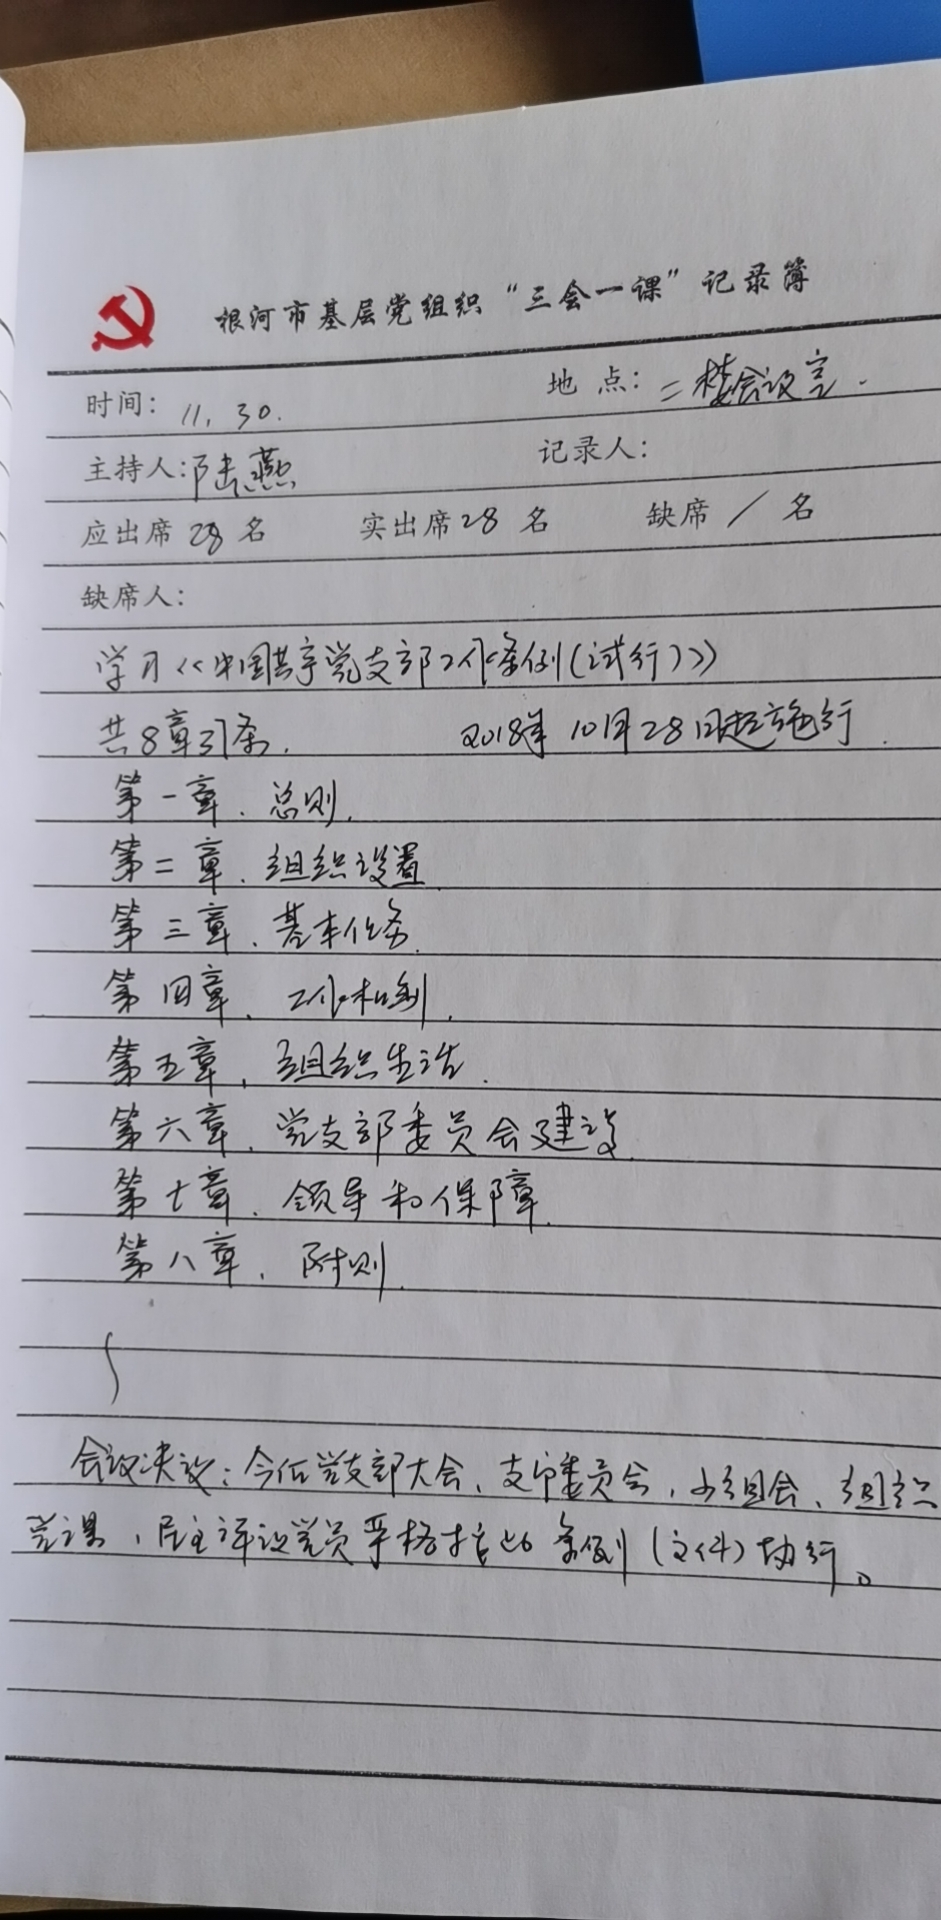 根河市基层党组织“三会一课”记录簿
时间: 11.30. 地点: 二楼会议室.
主持人: 陆燕 记录人:
应出席 28 名 实出席 28 名 缺席 / 名
缺席人:
学习《中国共产党支部工作条例(试行)》
共8章37条. 2018年10月28日起施行.
第一章. 总则.
第二章. 组织设置
第三章. 基本任务.
第四章. 工作机制.
第五章. 组织生活.
第六章. 党支部委员会建设.
第七章. 领导和保障.
第八章. 附则.
会议决议: 今后党支部大会、支部委员会, 小组会、组织
党课, 民主评议党员严格按此条例(文件)执行。